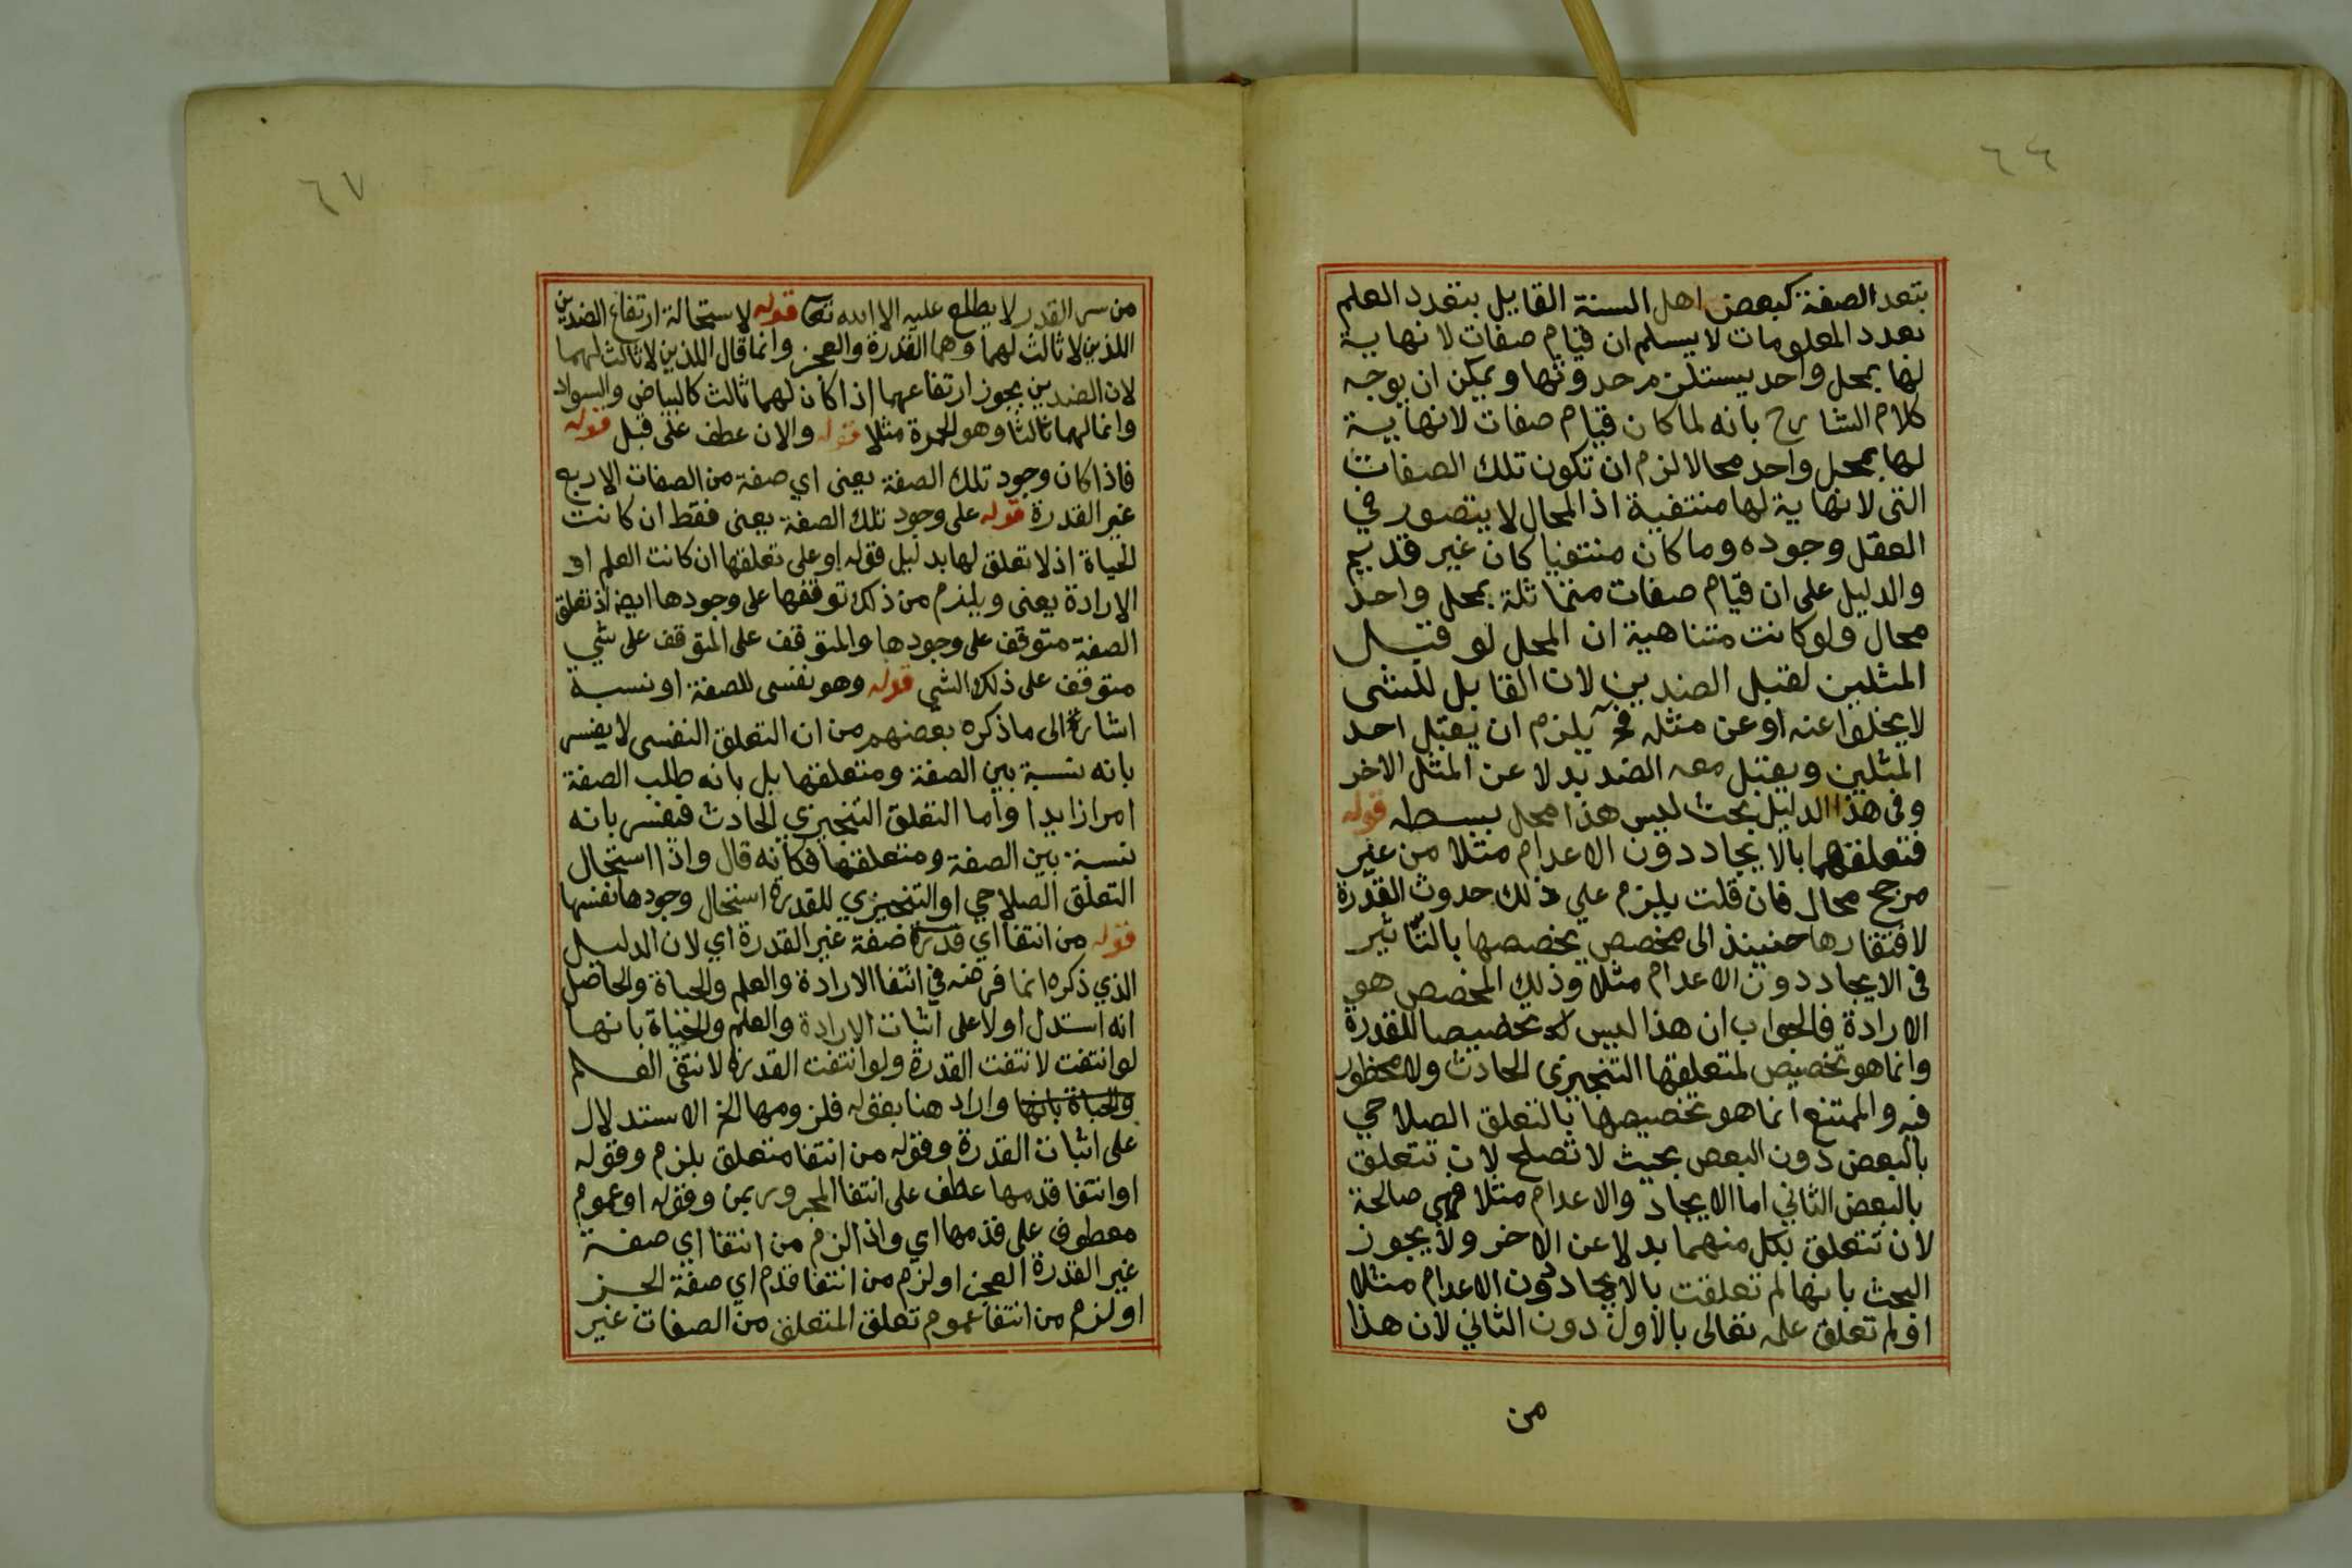 ٦٦
بتعد الصفة كبعض اهل السنة القايل بتعدد العلم
بعدد المعلومات لا يسلم ان قيام صفات لا نهاية
لها بمحل واحد يستلزم حدوثها ويمكن ان يوجه
كلام الشارح بانه لما كان قيام صفات لانهاية
لها بمحل واحد محالا لزم ان تكون تلك الصفات
التى لا نهاية لها منتفية اذ المحال لا يتصور في
العقل وجوده وما كان منتفيا كان غير قديم
والدليل على ان قيام صفات متماثلة بمحل واحد
محال ولو كانت متناهية ان المحل لو قبل
المثلين لقبل الضدين لان القابل للشى
لا يخلوا عنه او عن مثله فح يلزم ان يقبل احد
المثلين ويقبل معه الضد بدلا عن المثل الاخر
وفى هذا الدليل بحث ليس هذا محل بسطه قوله
فتعلقهما بالايجاد دون الاعدام مثلا من غير
مرجح محال فان قلت يلزم علي ذلك حدوث القدرة
لافتقارها حنيند الى مخصص يخصصها بالتاثير
فى الايجاد دون الاعدام مثلا وذلك المخصص هو
الارادة فالجواب ان هذا ليس تخصيصا للقدرة
وانما هو تخصيص لمتعلقها التنجيزى الحادث ولا محظور
فيه والممتنع انما هو تخصيصها بالتعلق الصلاحي
بالبعض دون البعض بحيث لا تصلح لان تتعلق
بالبعض الثاني اما الايجاد والاعدام مثلا فهى صالحة
لان تتعلق بكل منهما بدلا عن الاخر ولا يجوز
البحث بانها لم تعلقت بالايجاد دون الاعدام مثلا
او لم تعلق علمه تعالى بالاول دون الثاني لان هذا
من
٦٧
من سر القدر لا يطلع عليه الا الله تعا قوله لاستحالة ارتفاع الضدين
اللذين لا ثالث لهما وهما القدرة والعجز وانما قال اللذين لا ثالث لهما
لان الضدين يجوز ارتفاعهما اذا كان لهما ثالث كالبياض والسواد
وانما لهما ثالثا وهو الحمرة مثلا قوله والان عطف على قبل قوله
فاذا كان وجود تلك الصفة يعنى اي صفة من الصفات الاربع
غير القدرة قوله على وجود تلك الصفة يعنى فقط ان كانت
الحياة اذ لا تعلق لها بدليل قوله او على تعلقها ان كانت العلم او
الارادة يعنى ويلزم من ذلك توقفها على وجودها ايضا اذ تعلق
الصفة متوقف على وجودها والمتوقف على المتوقف على شي
متوقف على ذلك الشي قوله وهو نفسى للصفة او نسبة
اشارة الى ما ذكره بعضهم من ان التعلق النفسى لا يفسر
بانه نسبة بين الصفة ومتعلقها بل بانه طلب الصفة
امرا زايدا واما التعلق التنجيزي الحادث فيفسر بانه
نسبة بين الصفة ومتعلقها فكانه قال واذا استحال
التعلق الصلاحي او التنجيزي للقدرة استحال وجودها نفسها
قوله من انتفا اي قدرة صفة غير القدرة اي لان الدليل
الذي ذكره انما فرضه في انتفا الارادة والعلم والحياة والحاصل
انه استدل اولا على اثبات الارادة والعلم والحياة بانها
لو انتفت لانتفت القدرة ولو انتفت القدرة لانتفى العلم
والحياة بانها واراد هنا بقوله فلزومها الخ الاستدلال
على اثبات القدرة وقوله من انتفا متعلق بلزم وقوله
او انتفا قدمها عطف على انتفا المجرور بمن وقوله او عموم
معطوف على قدمها اي واذا لزم من انتفا اي صفة
غير القدرة العجز او لزم من انتفا قدم اي صفة العجز
او لزم من انتفا عموم تعلق المتعلق من الصفات غير